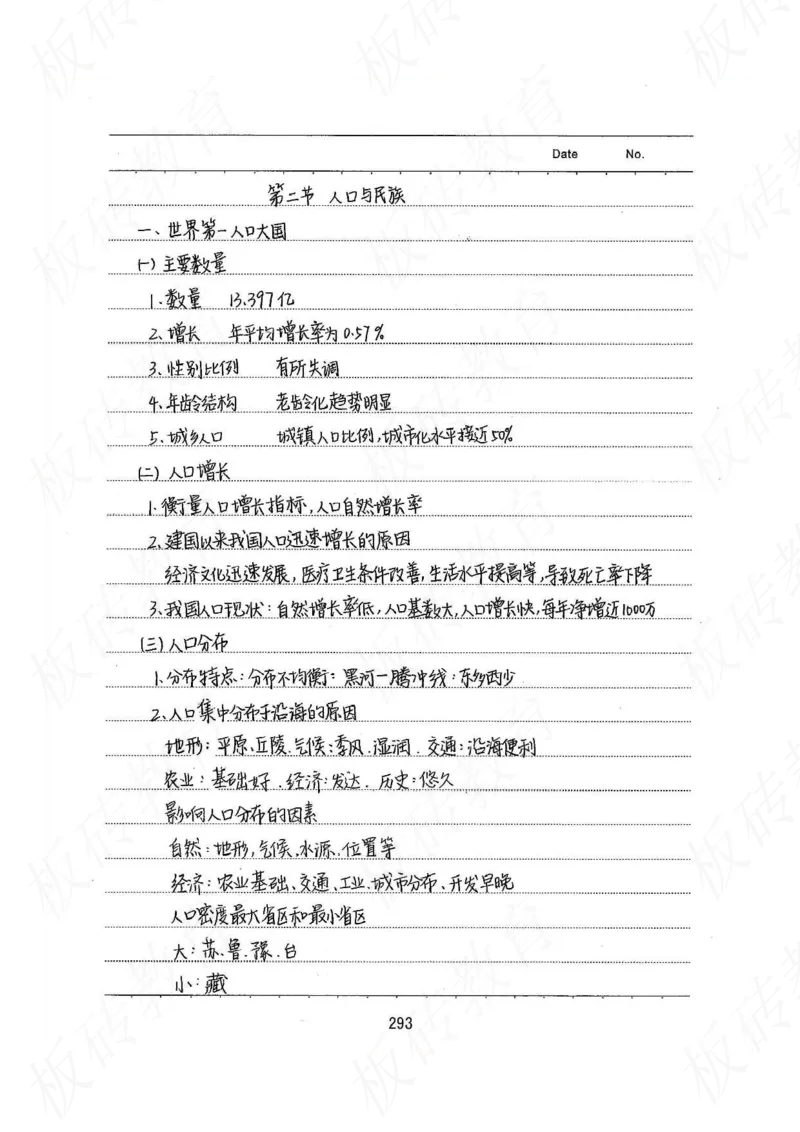 Date No.
第二节 人口与民族
一、世界第一人口大国
(一) 主要数量
1.数量 13.397亿
2.增长 年平均增长率为0.57%
3.性别比例 有所失调
4.年龄结构 老龄化趋势明显
5.城乡人口 城镇人口比例,城市化水平接近50%
(二) 人口增长
1.衡量人口增长指标,人口自然增长率
2.建国以来我国人口迅速增长的原因
经济文化迅速发展,医疗卫生条件改善,生活水平提高等,导致死亡率下降
3.我国人口现状:自然增长率低,人口基数大,人口增长快,每年净增近1000万
(三) 人口分布
1.分布特点:分布不均衡:黑河—腾冲线:东多西少
2.人口集中分布于沿海的原因
地形:平原、丘陵.气候:季风.湿润.交通:沿海便利
农业:基础好.经济:发达.历史:悠久
影响人口分布的因素
自然:地形,气候、水源、位置等
经济:农业基础、交通、工业.城市分布、开发早晚
人口密度最大省区和最小省区
大:苏.鲁.豫.台
小:藏
293
板砖教育